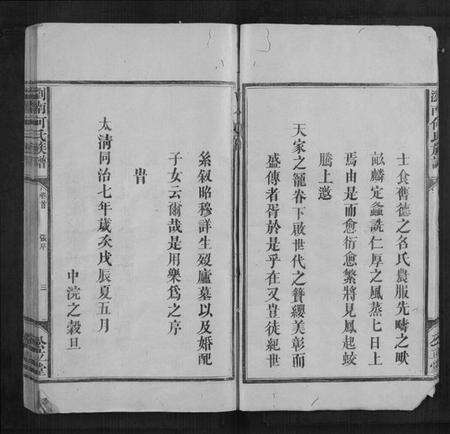 士食舊德之名氏農服先疇之畎
畝麟定螽詵仁厚之風蒸七日上
焉由是而愈衍愈繁將見鳳起蛟
騰上邀
天家之寵眷下啟世代之簪纓美彰而
盛傳者胥於是乎在又豈徒紀世
系叙昭穆詳生歿廬墓以及婚配
子女云爾哉是用樂為之序
旹
大清同治七年歲次戊辰夏五月
中浣之穀旦
瀏南何氏族譜
卷首
張序
三